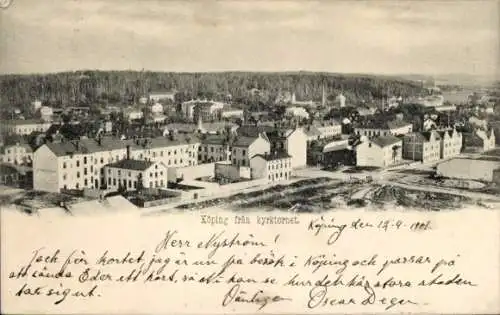 Köping från kyrktornet.
Köping den 12-9-1901.
Herr Nyström!
Tack för kortet, jag är nu på besök i Köping och passar på
att sända Eder ett kort, så ni kan se hurudan här stora staden
tar sig ut. Vänligen Oscar